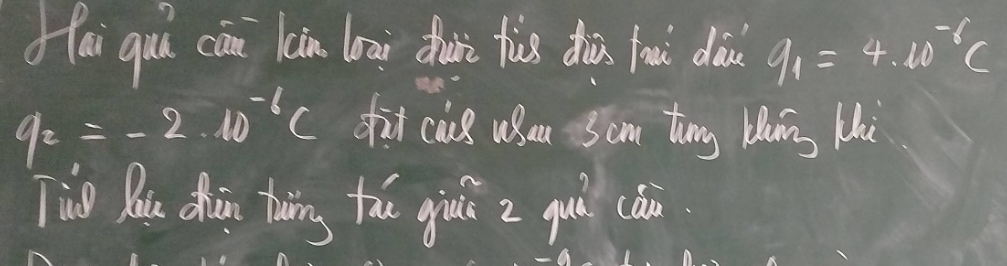 Hai quả cầu kim loại được tích điện trái dấu q₁ = 4.10⁻⁶C
q₂ = -2.10⁻⁶C đặt cách nhau 3cm trong không khí.
Tính lực điện tương tác giữa 2 quả cầu.